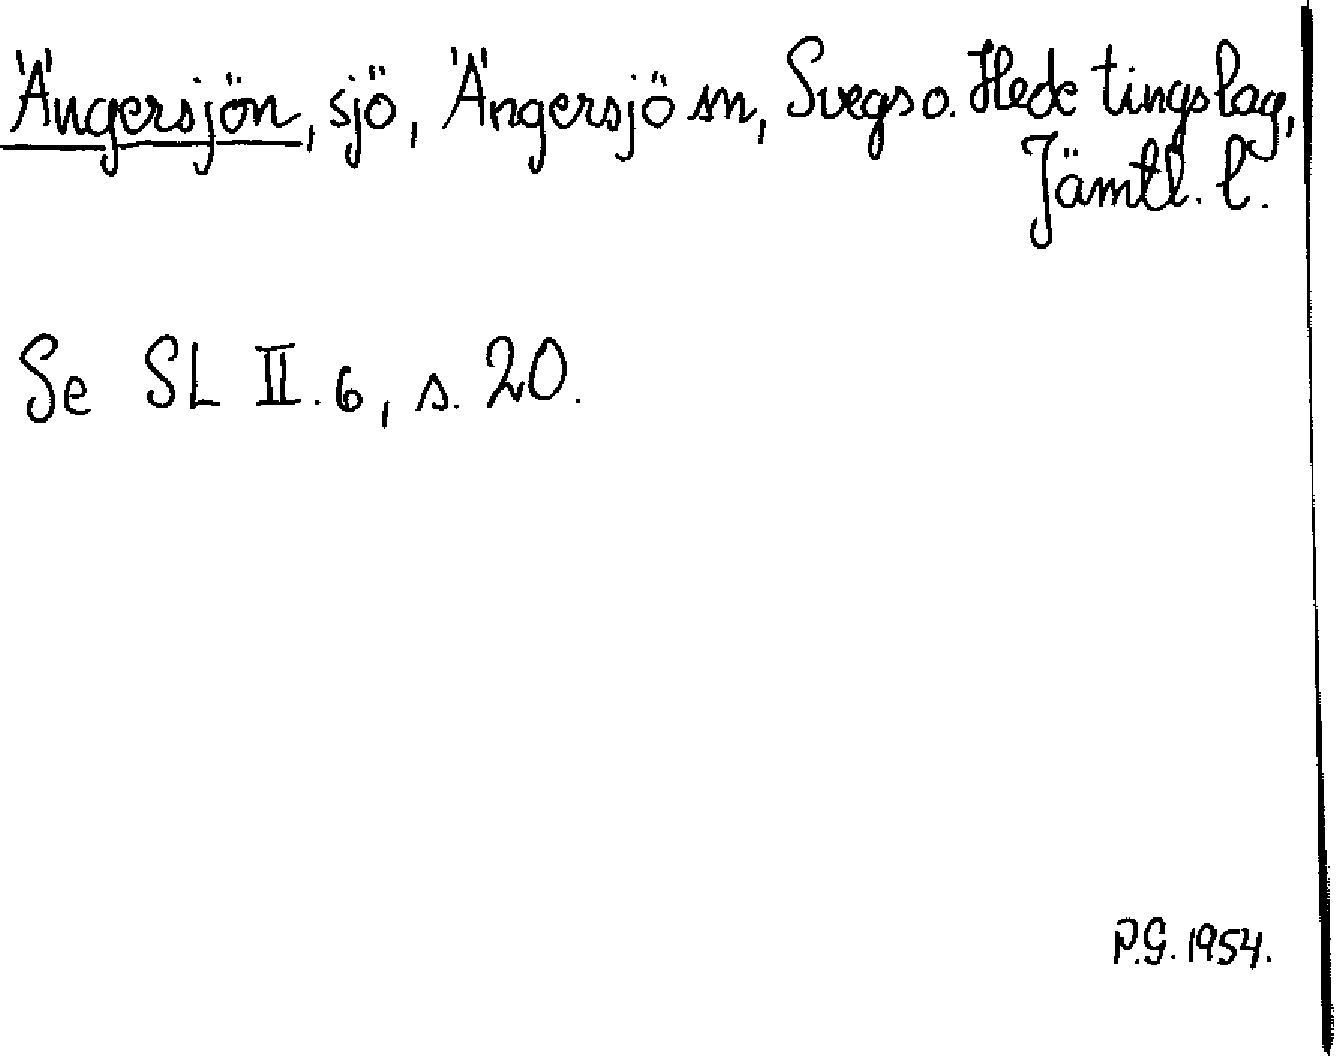 Ängersjön, sjö, Ängersjö sn, Svegs o. Hede tingslag,
Jämtl. l.
Se SL II. 6, s. 20.
P.G. 1954.